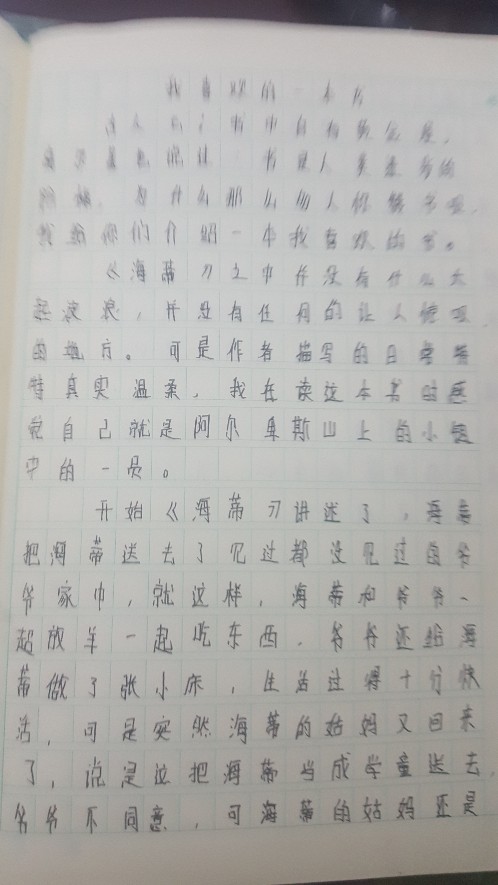 我喜欢的一本书
古人云：书中自有黄金屋，
书是人类进步的
阶梯，为什么那么的人都读书呢，
我给你们介绍一本我喜欢的书。
《海蒂》文中并没有什么大
起波浪，并没有任何的让人惊叹
的地方。可是作者描写的日常特
特真实温柔，我在读这本书时感
觉自己就是阿尔卑斯山上的小镇
中的一员。
开始《海蒂》讲述了，海蒂
把海蒂送去了见过都没见过的爷
爷家中，就这样，海蒂和爷爷一
起放羊一起吃东西，爷爷还给海
蒂做了张小床，生活过得十分快
活，可是突然海蒂的姑妈又回来
了，说是这把海蒂当成学童送去，
爷爷不同意，可海蒂的姑妈还是